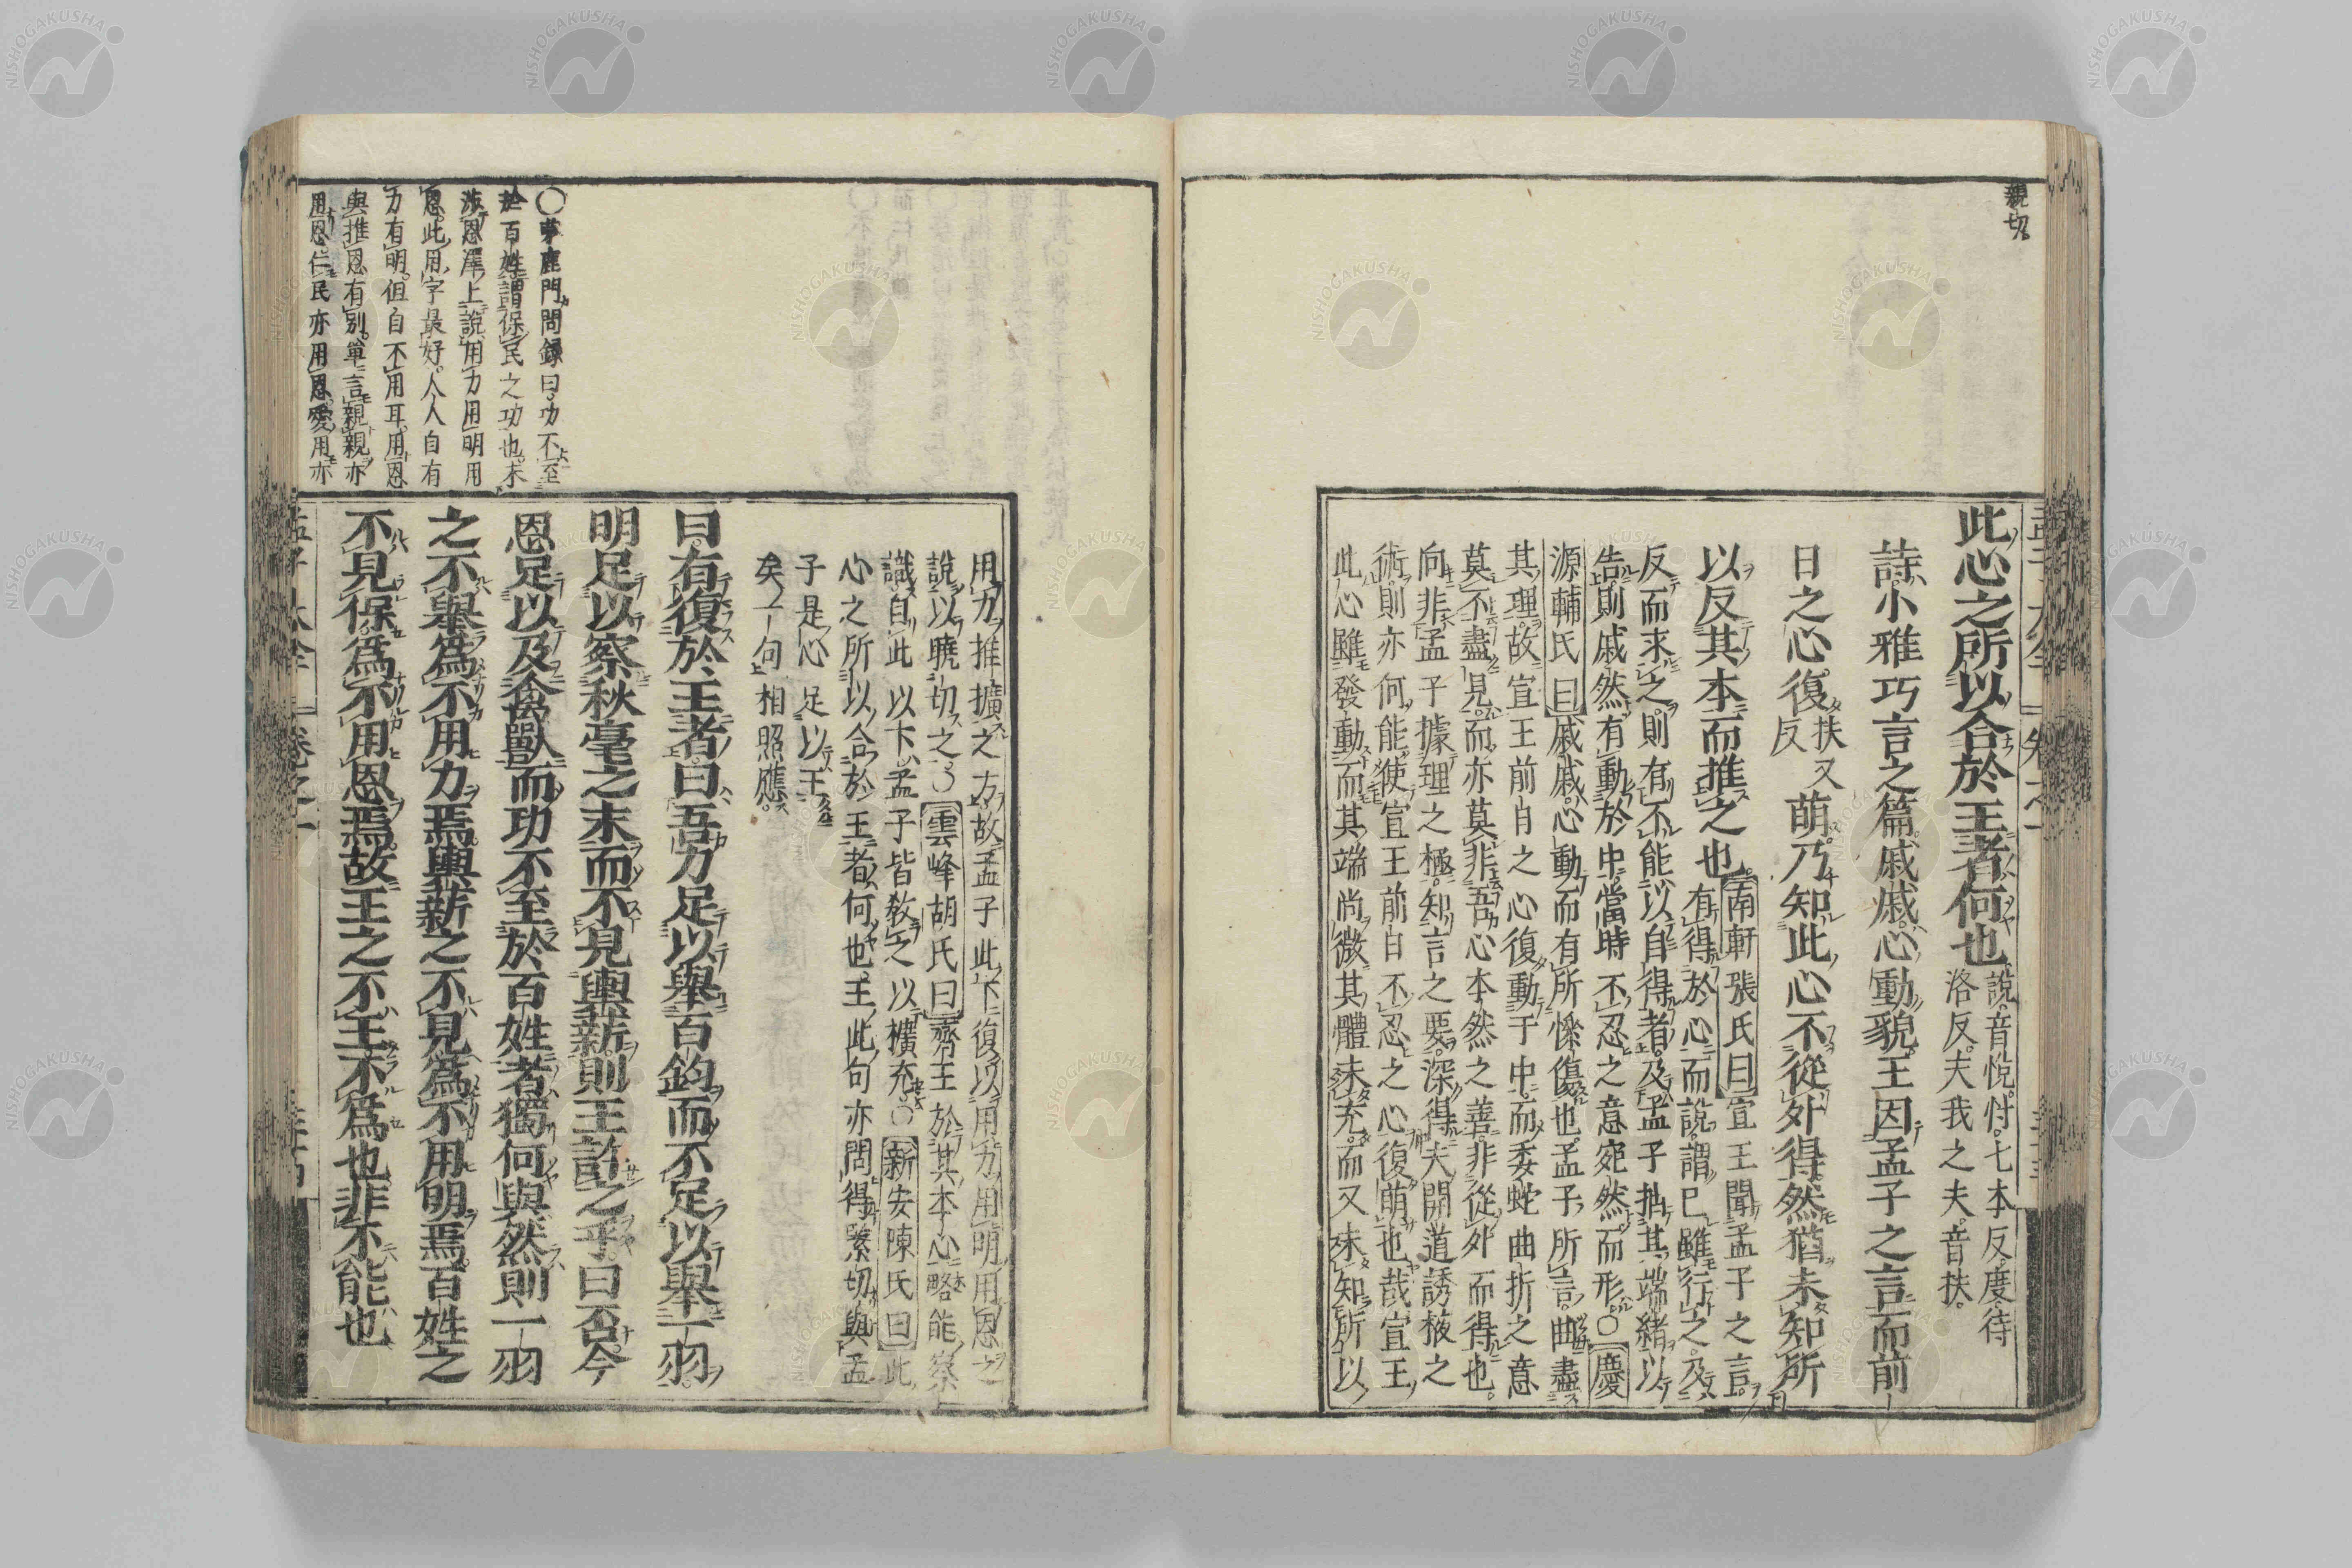 親切
此心之所以合於王者何也說音悅忖七本反度待
洛反夫我之夫音扶
詩小雅巧言之篇戚戚心動貌王因孟子之言而前
日之心復扶又反萌乃知此心不從外得然猶未知所
以反其本而推之也南軒張氏曰宣王聞孟子之言
有得於心而說謂已雖行之及
反而求之則有不能以自得者及孟子指其端緒以
告則戚然有動於中當時不忍之意宛然而形○慶
源輔氏曰戚戚心動而有所慘傷也孟子所言曲盡
其理故宣王前日之心復動于中而委蛇曲折之意
莫不盡見而亦莫非吾心本然之善非從外而得也
向非孟子據理之極知言之要深得夫開道誘掖之
術則亦何能使宣王前日不忍之心復萌也哉宣王
此心雖發動而其端尚微其體未充而又未知所以
用力推擴之方故孟子此下復以用力用明用恩之
說以曉切之○雲峰胡氏曰齊王於其本心略能察
識自此以下孟子皆教之以擴充○新安陳氏曰此
心之所以合於王者何也王此句亦問得緊切與孟
子是心足以王
矣一句相照應
曰有復於王者曰吾力足以舉百鈞而不足以舉一羽
明足以察秋毫之末而不見輿薪則王許之乎曰否今
恩足以及禽獸而功不至於百姓者獨何與然則一羽
之不舉爲不用力焉輿薪之不見爲不用明焉百姓之
不見保爲不用恩焉故王之不王不爲也非不能也
○茅鹿門問錄曰功不至
於百姓謂保民之功也未
涉恩澤上說用力用明用
恩此用字最好人人自有
力有明但自不用耳用恩
與推恩有別單言親親亦
用恩仁民亦用恩愛用亦